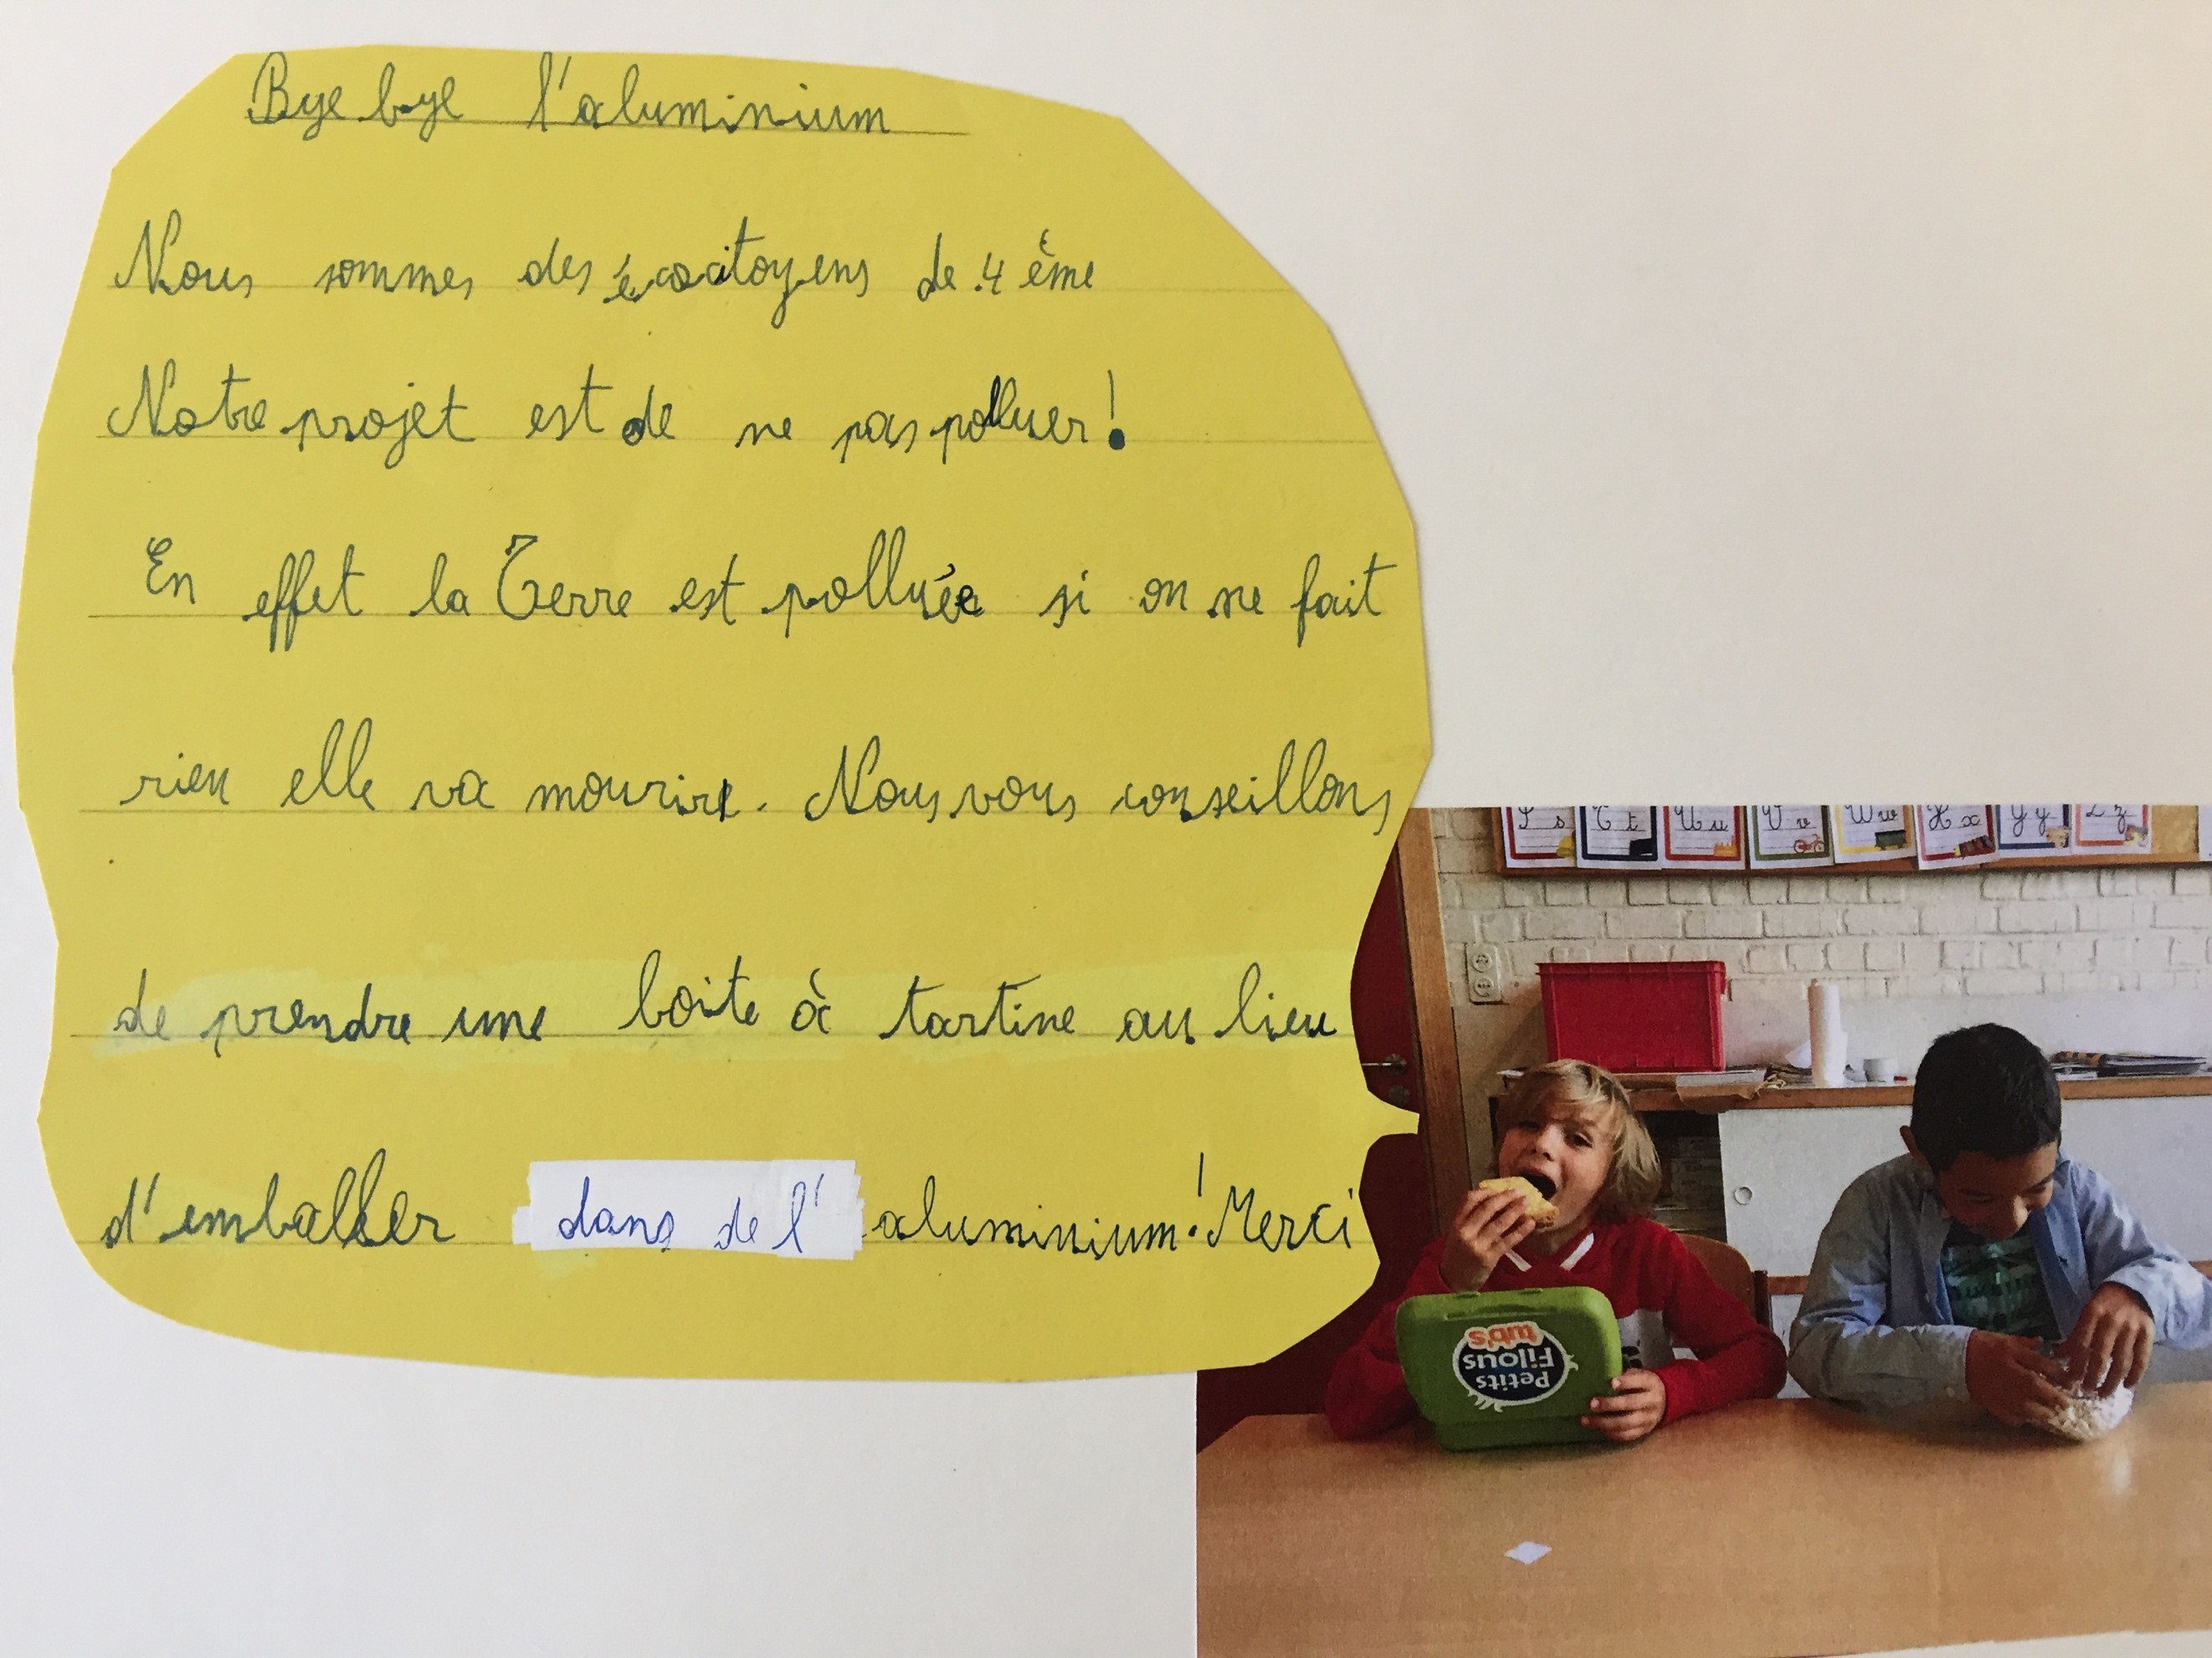 Bye bye l'aluminium
Nous sommes des écocitoyens de 4 ème
Notre projet est de ne pas polluer!
En effet la Terre est polluée si on ne fait
rien elle va mourire. Nous vous conseillons
de prendre une boite à tartine au lieu
d'emballer dans de l'aluminium! Merci
S s T t U u V v W w X x Y y Z z
Petits
Filous
tub's